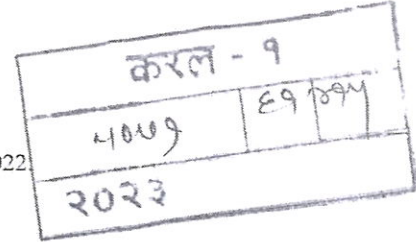 करल - १
५०७१ ६१ २१५
022
२०२३